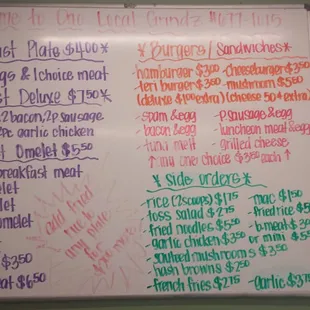 me to Ono Local Grindz #677-1015
ast Plate $4.00*
gs & 1 choice meat
st Deluxe $7.50*
2 bacon, 2p Sausage
2pc garlic chicken
Omelet $5.50
breakfast meat
let
let
omelet
let
$3.50
eat $6.50
add fried
rice to
any plate
for
more
* Burgers / Sandwiches *
hamburger $3.00 - Cheeseburger $3.50
teri burger $3.50 - mushroom $5.50
(deluxe $1.00 extra) (cheese 50¢ extra)
- spam & egg - p. sausage & egg
- bacon & egg - luncheon meat & egg
- tuna melt - grilled cheese
↑ any one choice $3.50 each ↑
* side orders *
rice (2 scoops) $1.75 - mac $1.50
toss salad $2.75 - fried rice $5
fried noodles $5.50 - b.meat $3
garlic chicken $3.50 or mini $5.5
sauteed mushrooms $3.50
hash browns $2.50
french fries $2.75 - garlic $3.75